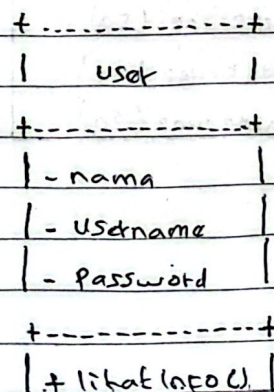 +-----------+
| user |
+-----------+
| - nama |
| - username |
| - Password |
+-----------+
| + lihatInfo() |